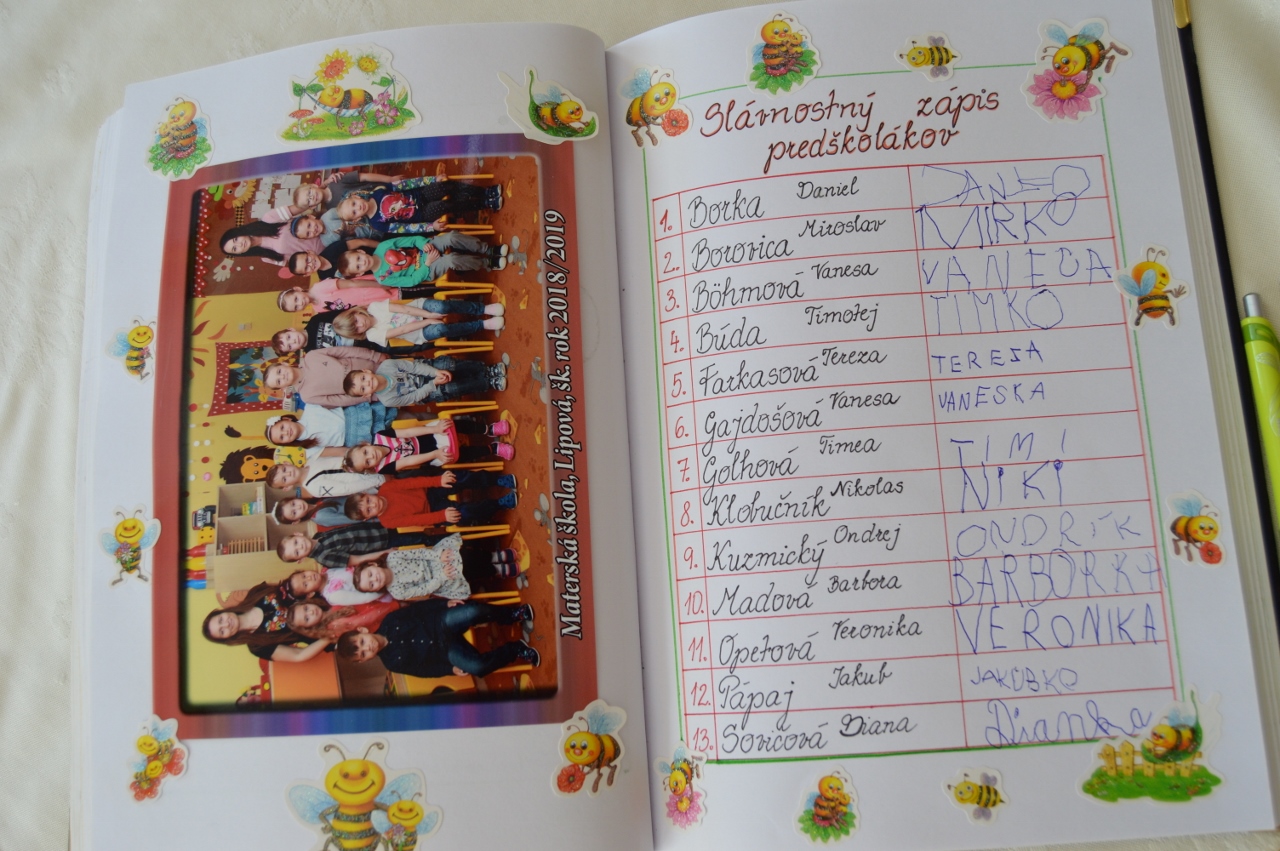 Materská škola, Lipová, šk. rok 2018/2019
Slávnostný zápis
predškolákov
1. Borka Daniel DANEO
2. Borovica Miroslav MIRKO
3. Böhmová Vanesa VANECA
4. Búda Timotej TIMKO
5. Farkasová Tereza TEREZA
6. Gajdošová Vanesa VANESKA
7. Golhová Timea TIMI
8. Klobučník Nikolas NIKI
9. Kuzmický Ondrej ONDRÍK
10. Madová Barbora BARBORKA
11. Opetová Veronika VERONIKA
12. Pápaj Jakub JAKUBKO
13. Sovičová Diana Dianka